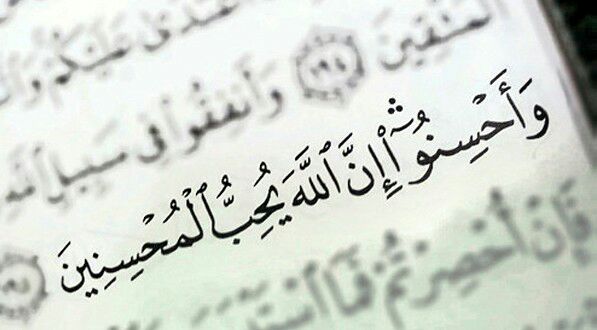 عَلَيْكُمْ
ٱلْمُتَّقِينَ ١٩٤ وَأَنفِقُوا۟ فِى سَبِيلِ ٱللَّهِ
وَأَحْسِنُوٓا۟ ۛ إِنَّ ٱللَّهَ يُحِبُّ ٱلْمُحْسِنِينَ
فَإِنْ أُحْصِرْتُمْ فَمَا